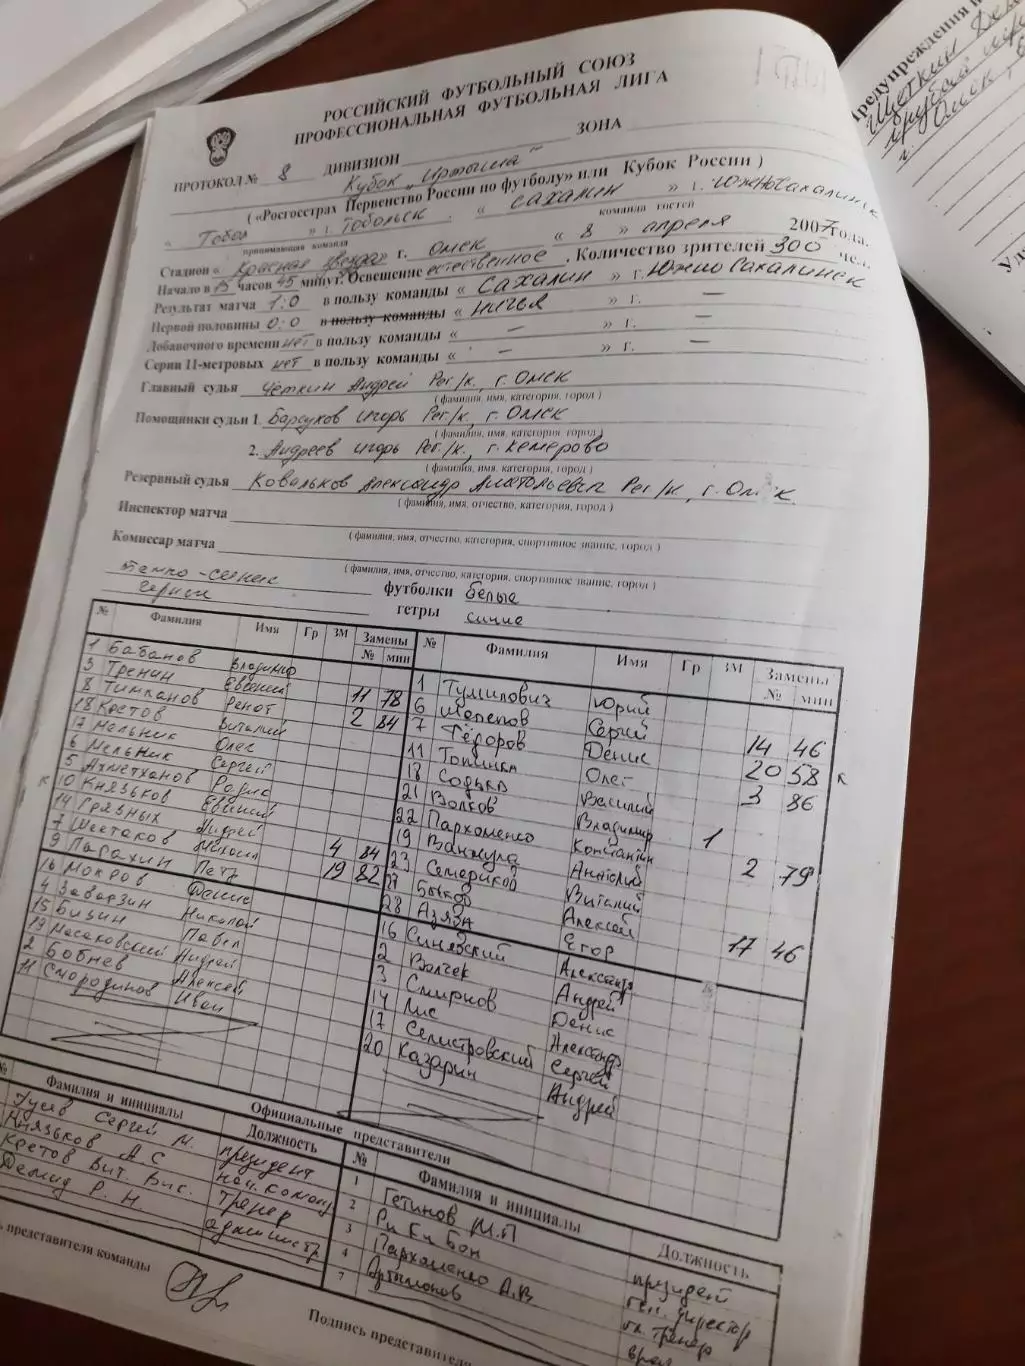 РОССИЙСКИЙ ФУТБОЛЬНЫЙ СОЮЗ
ПРОФЕССИОНАЛЬНАЯ ФУТБОЛЬНАЯ ЛИГА
ПРОТОКОЛ № 8 ДИВИЗИОН ЗОНА
Кубок "Иртыша"
( «Росгосстрах Первенство России по футболу» или Кубок России )
« Тобол » г. Тобольск . « Сахалин » г. Южно Сахалинск
принимающая команда команда гостей
Стадион « Красная звезда» г. Омск « 8 » апреля 2007 года.
Начало в 15 часов 45 минут. Освещение естественное . Количество зрителей 300 чел.
Результат матча 1:0 в пользу команды « Сахалин » г. Южно Сахалинск
Первой половины 0:0 в пользу команды « ничья » г. —
Добавочного времени нет в пользу команды « — » г. —
Серии 11-метровых нет в пользу команды « — » г. —
Главный судья Чёткин Андрей Рег/к, г. Омск
( фамилия, имя, категория, город )
Помощники судьи 1. Барсуков Игорь Рег/к, г. Омск
( фамилия, имя, категория, город )
2. Андреев Игорь Рег/к, г. Кемерово
( фамилия, имя, категория, город )
Резервный судья Ковальков Александр Анатольевич Рег/к, г. Омск
( фамилия, имя, отчество, категория, город )
Инспектор матча
( фамилия, имя, отчество, категория, спортивное звание, город )
Комиссар матча
( фамилия, имя, отчество, категория, спортивное звание, город )
темно-синие футболки белые
черные гетры синие
№ Фамилия Имя Гр ЗМ Замены № Фамилия Имя Гр ЗМ Замены
№ мин № мин
1 Бабанов Владимир 1 Тумилович Юрий
3 Тренин Евгений 6 Шепелов Сергей
8 Тимканов Ренат 11 78 7 Фёдоров Денис 14 46
18 Кретов Виталий 2 84 11 Топинка Олег 20 58 к
17 Мельник Олег 18 Содько Василий 3 86
6 Мельник Сергей 21 Волков Владимир
5 Ахметханов Радик 22 Пархоменко Константин 1
к 10 Князьков Евгений 19 Ванжула Анатолий 2 79
14 Грязных Андрей 23 Семериков Виталий
7 Шестаков Михаил 4 84 27 Быков Алексей
9 Парахин Петр 19 82 28 Азявин Егор 17 46
16 Мокров Денис 16 Синявский Александр
4 Заварзин Николай 2 Волчек Андрей
15 Бизин Павел 3 Смирнов Денис
19 Масаковский Андрей 14 Лис Александр
2 Бобнев Алексей 17 Селистровский Сергей
11 Смородинов Иван 20 Казарин Андрей
Официальные представители
№ Фамилия и инициалы Должность № Фамилия и инициалы Должность
Гусев Сергей М. президент 1 Гетинов М.П президент
Князьков А С нач. команды 2 Ри Ки Бон ген. директор
Кретов Вит. Вик. тренер 3 Пархоменко А.В гл. тренер
Демид Р. Н. администр. 4 Артамонов врач
7
представителя команды
Подпись представителя